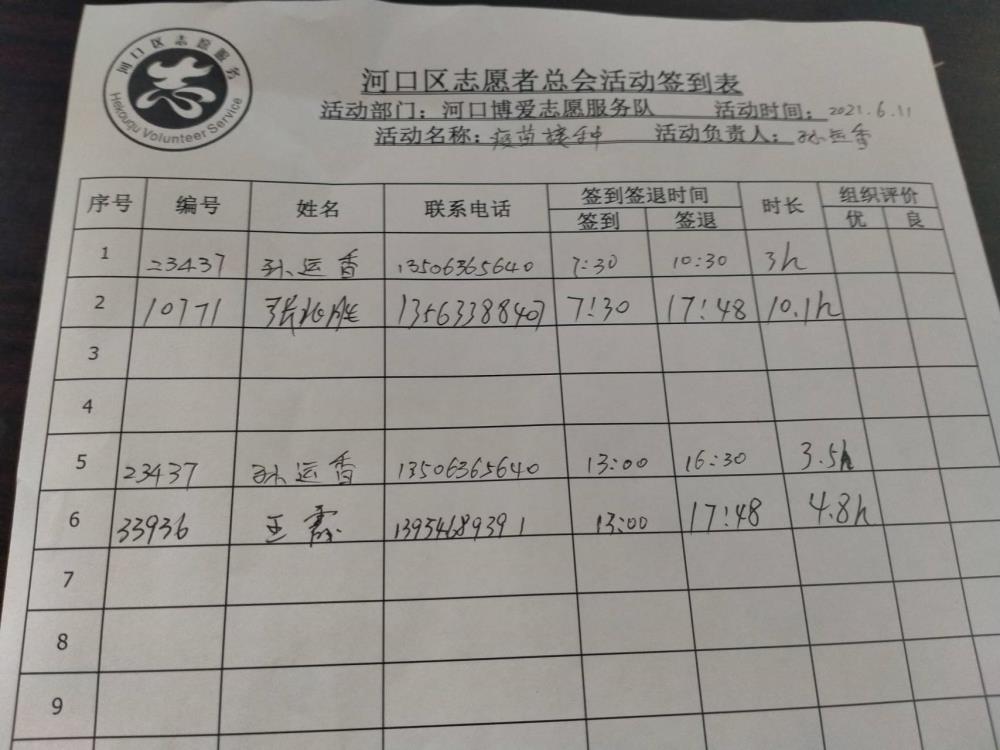 河口区志愿服务
志
Hekouqu Volunteer Service
河口区志愿者总会活动签到表
活动部门：河口博爱志愿服务队 活动时间：2021.6.11
活动名称：疫苗接种 活动负责人：孙运香
序号 编号 姓名 联系电话 签到签退时间 时长 组织评价
签到 签退 优 良
1 23437 孙运香 13506365640 7:30 10:30 3h
2 10771 张 13563388407 7:30 17:48 10.1h
3
4
5 23437 孙运香 13506365640 13:00 16:30 3.5h
6 33936 王霞 13954689391 13:00 17:48 4.8h
7
8
9